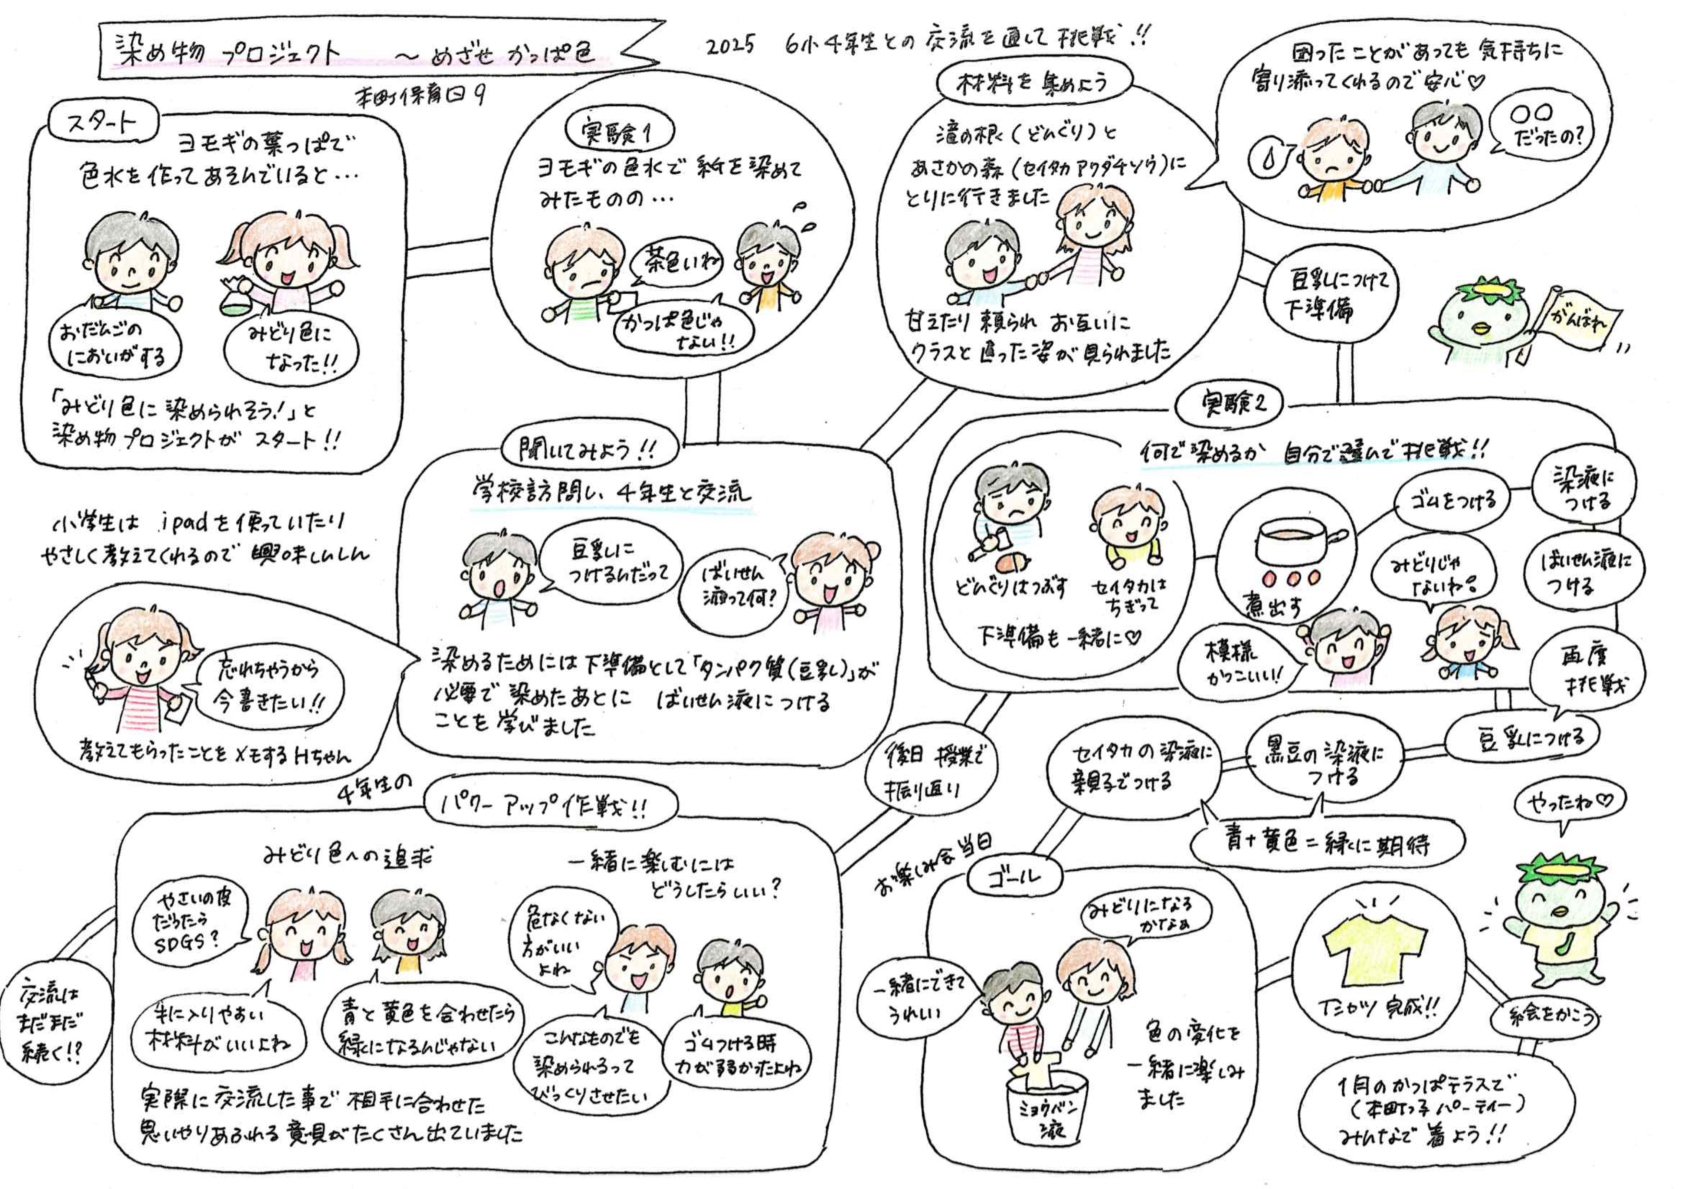 染め物プロジェクト ～めざせ かっぱ色
2025 6小4年生との交流を通して挑戦!!
本町保育園
スタート
ヨモギの葉っぱで
色水を作ってあそんでいると…
おだんごの
においがする
みどり色に
なった!!
「みどり色に染められそう!」と
染め物プロジェクトが スタート!!
実験1
ヨモギの色水で 紙を染めて
みたものの…
茶色いね
かっぱ色じゃ
ない!!
材料を集めよう
滝の根(どんぐり)と
あさかの森(セイタカアワダチソウ)に
とりに行きました
甘えたり 頼られ お互いに
クラスと違った姿が見られました
困ったことがあっても 気持ちに
寄り添ってくれるので安心♡
○○
だったの?
豆乳につけて
下準備
がんばれ
聞いてみよう!!
学校訪問し、4年生と交流
豆乳に
つけるんだって
ばいせん
液って何?
染めるためには下準備として「タンパク質(豆乳)」が
必要で 染めたあとに ばいせん液につける
ことを 学びました
小学生は ipadを使っていたり
やさしく教えてくれるので 興味しんしん
忘れちゃうから
今書きたい!!
教えてもらったことをメモするHちゃん
実験2
何で染めるか 自分で選んで挑戦!!
どんぐりはつぶす
セイタカは
ちぎって
下準備も一緒に♡
煮出す
ゴムをつける
染液に
つける
ばいせん液に
つける
みどりじゃ
ないね。
模様
かっこいい!
再度
挑戦
豆乳につける
黒豆の染液に
つける
セイタカの染液に
親子でつける
青+黄色=緑に期待
後日 授業で
振り返り
4年生の
パワーアップ作戦!!
みどり色への追求
やさいの皮
だったら
SDGS?
手に入りやすい
材料がいいよね
青と黄色を合わせたら
緑になるんじゃない
一緒に楽しむには
どうしたらいい?
危なくない
方がいい
よね
こんなものでも
染められるって
びっくりさせたい
ゴムつける時
力が弱かったよね
実際に交流した事で 相手に合わせた
思いやりあふれる意見がたくさん出ていました
交流は
まだまだ
続く!?
お楽しみ会当日
ゴール
みどりになる
かなぁ
一緒にできて
うれしい
ミョウバン
液
色の変化を
一緒に楽しみ
ました
Tシャツ 完成!!
やったね♡
絵をかこう
1月のかっぱテラスで
(本町っ子パーティー)
みんなで着よう!!